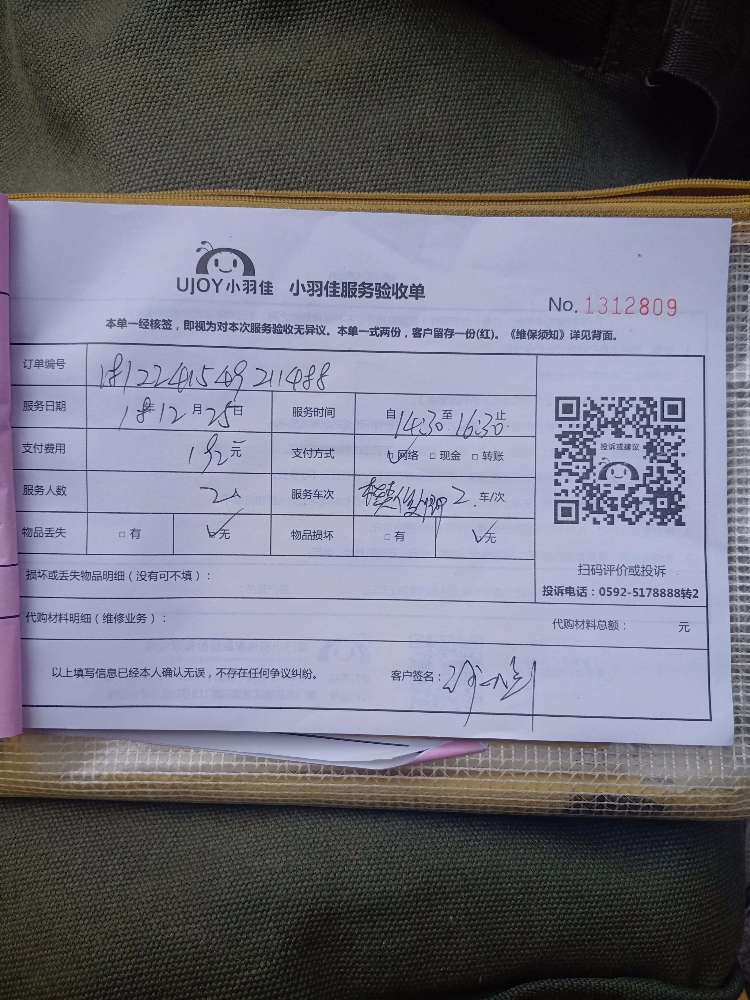 UJOY小羽佳 小羽佳服务验收单
No. 1312809
本单一经核签，即视为对本次服务验收无异议。本单一式两份，客户留存一份(红)。《维保须知》详见背面。
订单编号 181224154921488
服务日期 18年12月25日 服务时间 自14:30至16:30止
支付费用 192元 支付方式 网络 □ 现金 □ 转账
服务人数 2人 服务车次 2 车/次
物品丢失 □ 有 ☑无 物品损坏 □ 有 ☑无
投诉或建议
扫码评价或投诉
投诉电话：0592-5178888转2
损坏或丢失物品明细（没有可不填）：
代购材料明细（维修业务）： 代购材料总额： 元
以上填写信息已经本人确认无误，不存在任何争议纠纷。 客户签名：